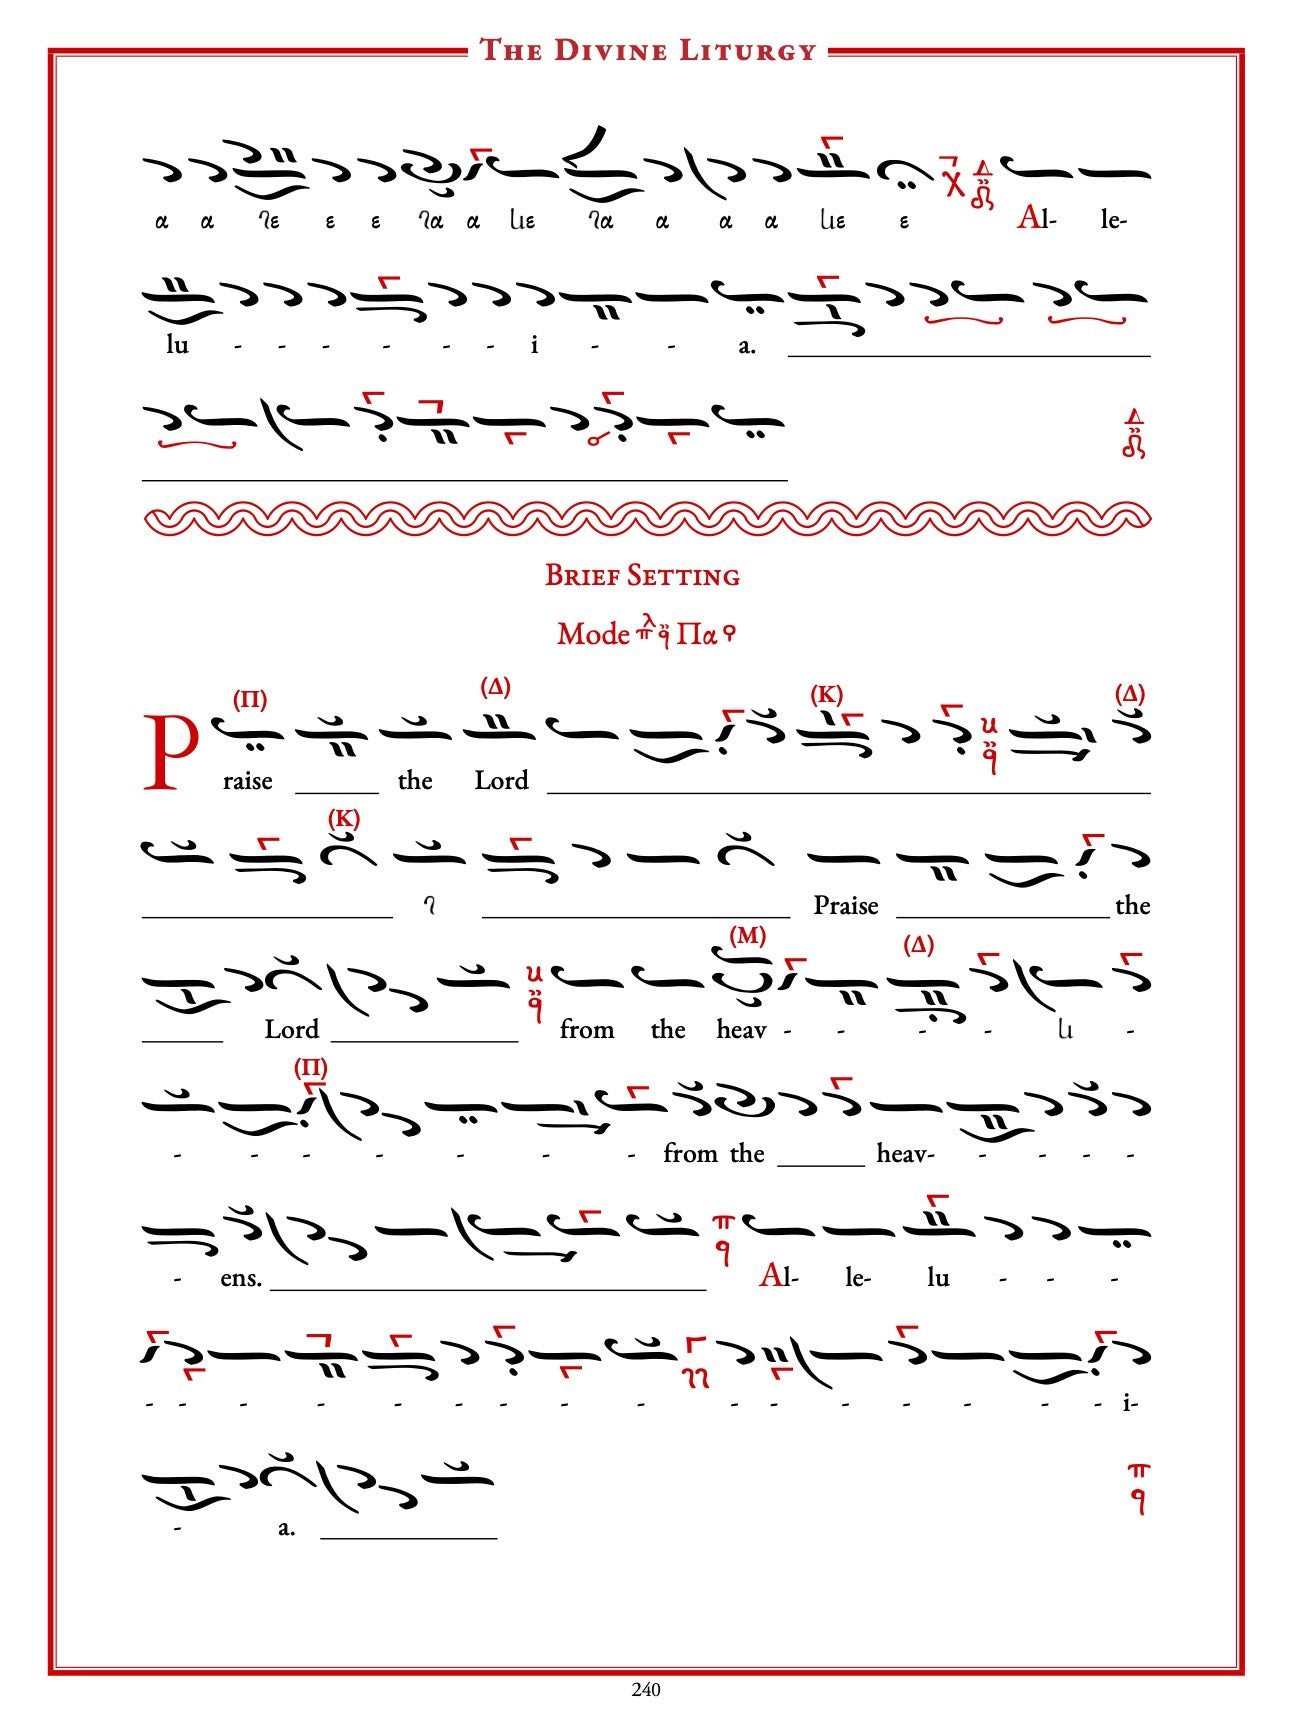 THE DIVINE LITURGY
α α ε ε ε α α ε α α α α ε ε Al- le-
lu - - - - - - i - - a.
BRIEF SETTING
Mode λ π q Πα
(Π) (Δ) (Κ) (Δ)
Praise the Lord
(Κ)
Praise the
(Μ) (Δ)
Lord from the heav - - - - -
(Π)
- - - - - - - from the heav- - - - -
- ens. Al- le- lu - - -
- - - - - - - - - - - - - - - - i-
- a.
240